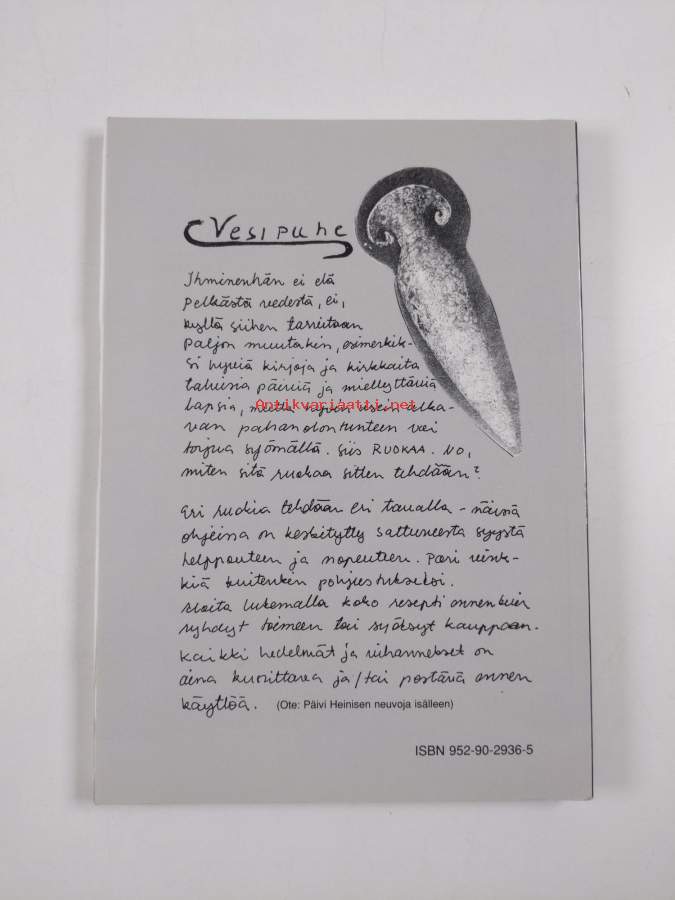 Vesipuhe
Ihminenhän ei elä
pelkästä vedestä, ei,
kyllä siihen tarvitaan
paljon muutakin, esimerkik-
si hyviä kirjoja ja kirkkaita
talvisia päiviä ja miellyttäviä
lapsia, mutta usein alka-
Antikvariaatti.net
van pahanolontunteen voi
torjua syömällä. Siis RUOKAA. NO,
miten sitä ruokaa sitten tehdään?
Eri ruokia tehdään eri tavalla - näissä
ohjeissa on keskitytty sattuneesta syystä
helppouteen ja nopeuteen. Pari vink-
kiä kuitenkin pohjustukseksi.
Aloita lukemalla koko resepti ennenkuin
ryhdyt toimeen tai syöksyt kauppaan.
Kaikki hedelmät ja vihannekset on
aina kuorittava ja/tai pestävä ennen
käyttöä. (Ote: Päivi Heinisen neuvoja isälleen)
ISBN 952-90-2936-5